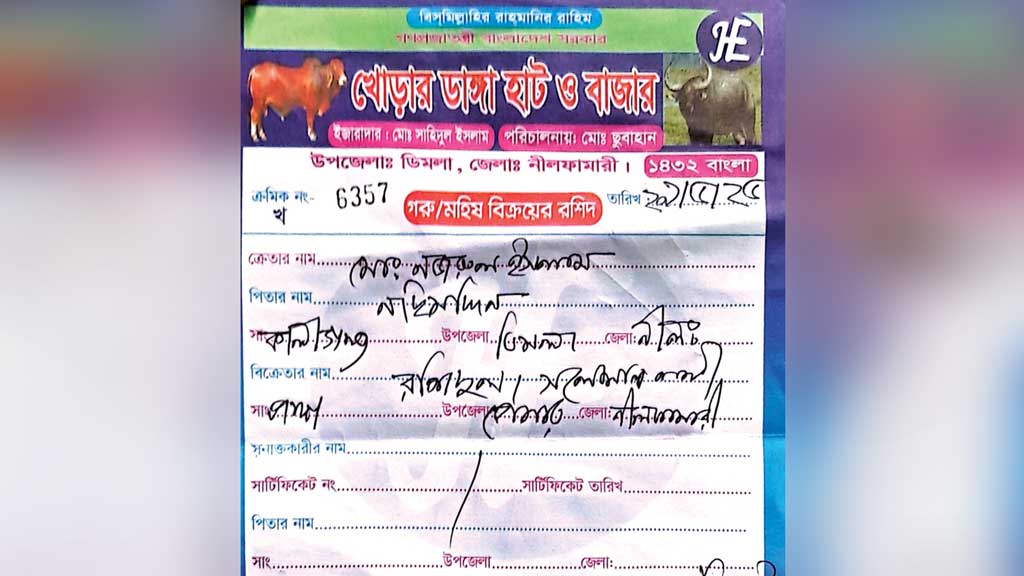 বিস্‌মিল্লাহির রাহমানির রাহিম
গণপ্রজাতন্ত্রী বাংলাদেশ সরকার
HE
খোড়ার ডাঙ্গা হাট ও বাজার
ইজারাদার : মোঃ সাহিদুল ইসলাম পরিচালনায়: মোঃ ছুবাহান
উপজেলাঃ ডিমলা, জেলাঃ নীলফামারী। ১৪৩২ বাংলা
ক্রমিক নং- 6357 গরু/মহিষ বিক্রয়ের রশিদ তারিখ
খ
ক্রেতার নাম মোঃ নজরুল ইসলাম
পিতার নাম নছিমদ্দিন
সাং কালীগঞ্জ উপজেলা ডিমলা জেলা: নীলঃ
বিক্রেতার নাম রশিদুল
সাং উপজেলা ডোমার জেলা: নীলফামারী
সনাক্তকারীর নাম
সার্টিফিকেট নং সার্টিফিকেট তারিখ
পিতার নাম
সাং উপজেলা জেলা: